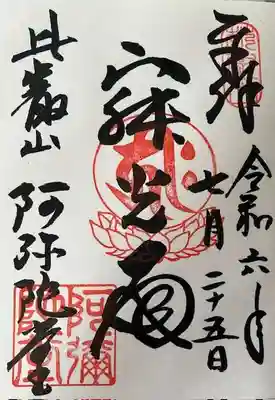 奉拝
令和六年
七月二十五日
寂光殿
比叡山 阿弥陀堂
阿彌陀堂